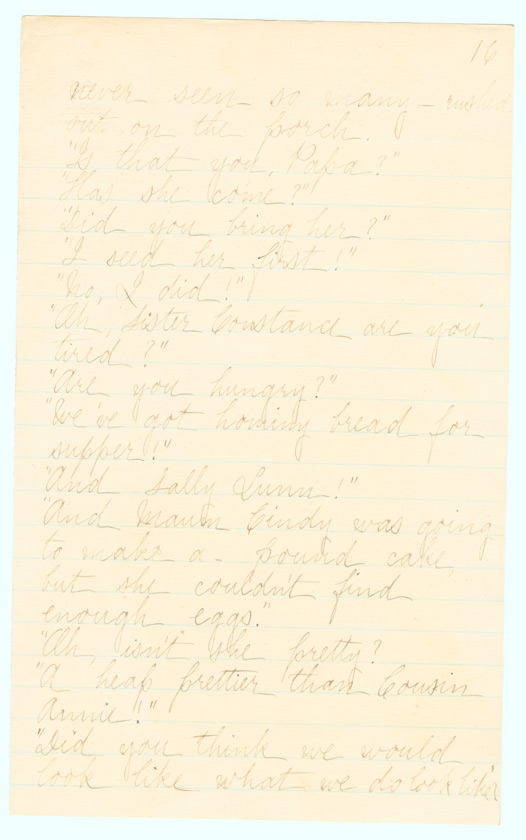 16
never seen so many - rushed
out on the porch.
"Is that you, Papa?"
"Has she come?"
"Did you bring her?"
"I seed her first!"
"No, I did!"
"Ah, Sister Constance are you
tired?"
"Are you hungry?"
"We've got hominy bread for
supper!"
"And Sally Lunn!"
"And Maum Cindy was going
to make a pound cake,
but she couldn't find
enough eggs."
"Ah, isn't she pretty?
"A heap prettier than Cousin
Annie!"
"Did you think we would
look like what we do look like